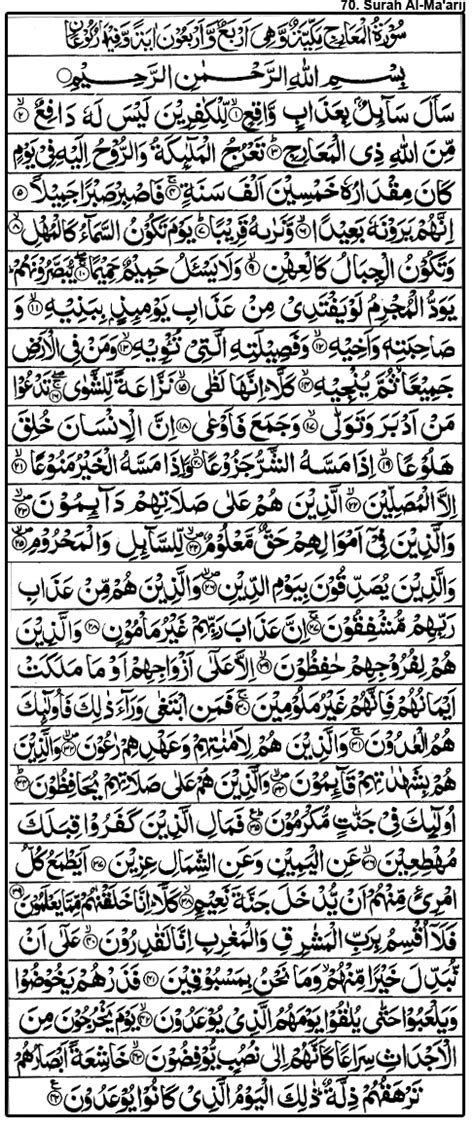 70. Surah Al-Ma'arij
سُوْرَةُ الْمَعَارِجِ مَكِّيَّةٌ وَّهِىَ اَرْبَعٌ وَّاَرْبَعُوْنَ اٰيَةً وَّفِيْهَا رُكُوْعَانِ
بِسْمِ اللّٰهِ الرَّحْمٰنِ الرَّحِيْمِ
سَاَلَ سَآئِلٌۢ بِعَذَابٍ وَّاقِعٍ ۙ﴿۱﴾ لِّلْكٰفِرِيْنَ لَيْسَ لَهٗ دَافِعٌ ۙ﴿۲﴾
مِّنَ اللّٰهِ ذِى الْمَعَارِجِ ؕ﴿۳﴾ تَعْرُجُ الْمَلٰٓئِكَةُ وَالرُّوْحُ اِلَيْهِ فِىْ يَوْمٍ
كَانَ مِقْدَارُهٗ خَمْسِيْنَ اَلْفَ سَنَةٍ ۚ﴿۴﴾ فَاصْبِرْ صَبْرًا جَمِيْلًا ﴿۵﴾
اِنَّهُمْ يَرَوْنَهٗ بَعِيْدًا ۙ﴿۶﴾ وَّنَرٰىهُ قَرِيْبًا ؕ﴿۷﴾ يَوْمَ تَكُوْنُ السَّمَآءُ كَالْمُهْلِ ۙ﴿۸﴾
وَتَكُوْنُ الْجِبَالُ كَالْعِهْنِ ۙ﴿۹﴾ وَلَا يَسْـَٔلُ حَمِيْمٌ حَمِيْمًا ۚۖ﴿۱۰﴾ يُّبَصَّرُوْنَهُمْ ؕ
يَوَدُّ الْمُجْرِمُ لَوْ يَفْتَدِىْ مِنْ عَذَابِ يَوْمِئِذٍۭ بِبَنِيْهِ ۙ﴿۱۱﴾ وَ
صَاحِبَتِهٖ وَاَخِيْهِ ۙ﴿۱۲﴾ وَفَصِيْلَتِهِ الَّتِىْ تُـْٔوِيْهِ ۙ﴿۱۳﴾ وَمَنْ فِى الْاَرْضِ
جَمِيْعًا ۙ ثُمَّ يُنْجِيْهِ ۙ﴿۱۴﴾ كَلَّا ؕ اِنَّهَا لَظٰى ۙ﴿۱۵﴾ نَزَّاعَةً لِّلشَّوٰى ۚۖ﴿۱۶﴾ تَدْعُوْا
مَنْ اَدْبَرَ وَتَوَلّٰى ۙ﴿۱۷﴾ وَجَمَعَ فَاَوْعٰى ﴿۱۸﴾ اِنَّ الْاِنْسَانَ خُلِقَ
هَلُوْعًا ۙ﴿۱۹﴾ اِذَا مَسَّهُ الشَّرُّ جَزُوْعًا ۙ﴿۲۰﴾ وَّاِذَا مَسَّهُ الْخَيْرُ مَنُوْعًا ۙ﴿۲۱﴾
اِلَّا الْمُصَلِّيْنَ ۙ﴿۲۲﴾ الَّذِيْنَ هُمْ عَلٰى صَلَاتِهِمْ دَآئِمُوْنَ ۪ۙ﴿۲۳﴾
وَالَّذِيْنَ فِىْٓ اَمْوَالِهِمْ حَقٌّ مَّعْلُوْمٌ ۪ۙ﴿۲۴﴾ لِّلسَّآئِلِ وَالْمَحْرُوْمِ ۪ۙ﴿۲۵﴾
وَالَّذِيْنَ يُصَدِّقُوْنَ بِيَوْمِ الدِّيْنِ ۪ۙ﴿۲۶﴾ وَالَّذِيْنَ هُمْ مِّنْ عَذَابِ
رَبِّهِمْ مُّشْفِقُوْنَ ۚ﴿۲۷﴾ اِنَّ عَذَابَ رَبِّهِمْ غَيْرُ مَاْمُوْنٍ ﴿۲۸﴾ وَالَّذِيْنَ
هُمْ لِفُرُوْجِهِمْ حٰفِظُوْنَ ۙ﴿۲۹﴾ اِلَّا عَلٰٓى اَزْوَاجِهِمْ اَوْ مَا مَلَكَتْ
اَيْمَانُهُمْ فَاِنَّهُمْ غَيْرُ مَلُوْمِيْنَ ۚ﴿۳۰﴾ فَمَنِ ابْتَغٰى وَرَآءَ ذٰلِكَ فَاُولٰٓئِكَ
هُمُ الْعٰدُوْنَ ۚ﴿۳۱﴾ وَالَّذِيْنَ هُمْ لِاَمٰنٰتِهِمْ وَعَهْدِهِمْ رٰعُوْنَ ۪ۙ﴿۳۲﴾ وَالَّذِيْنَ
هُمْ بِشَهٰدٰتِهِمْ قَآئِمُوْنَ ۪ۙ﴿۳۳﴾ وَالَّذِيْنَ هُمْ عَلٰى صَلَاتِهِمْ يُحَافِظُوْنَ ؕ﴿۳۴﴾
اُولٰٓئِكَ فِىْ جَنّٰتٍ مُّكْرَمُوْنَ ؕ﴿۳۵﴾ فَمَالِ الَّذِيْنَ كَفَرُوْا قِبَلَكَ
مُهْطِعِيْنَ ۙ﴿۳۶﴾ عَنِ الْيَمِيْنِ وَعَنِ الشِّمَالِ عِزِيْنَ ﴿۳۷﴾ اَيَطْمَعُ كُلُّ
امْرِئٍ مِّنْهُمْ اَنْ يُّدْخَلَ جَنَّةَ نَعِيْمٍ ۙ﴿۳۸﴾ كَلَّا ؕ اِنَّا خَلَقْنٰهُمْ مِّمَّا يَعْلَمُوْنَ ﴿۳۹﴾
فَلَآ اُقْسِمُ بِرَبِّ الْمَشٰرِقِ وَالْمَغٰرِبِ اِنَّا لَقٰدِرُوْنَ ۙ﴿۴۰﴾ عَلٰٓى اَنْ
نُّبَدِّلَ خَيْرًا مِّنْهُمْ ۙ وَمَا نَحْنُ بِمَسْبُوْقِيْنَ ﴿۴۱﴾ فَذَرْهُمْ يَخُوْضُوْا
وَيَلْعَبُوْا حَتّٰى يُلٰقُوْا يَوْمَهُمُ الَّذِىْ يُوْعَدُوْنَ ۙ﴿۴۲﴾ يَوْمَ يَخْرُجُوْنَ مِنَ
الْاَجْدَاثِ سِرَاعًا كَاَنَّهُمْ اِلٰى نُصُبٍ يُّوْفِضُوْنَ ۙ﴿۴۳﴾ خَاشِعَةً اَبْصَارُهُمْ
تَرْهَقُهُمْ ذِلَّةٌ ؕ ذٰلِكَ الْيَوْمُ الَّذِىْ كَانُوْا يُوْعَدُوْنَ ﴿۴۴﴾